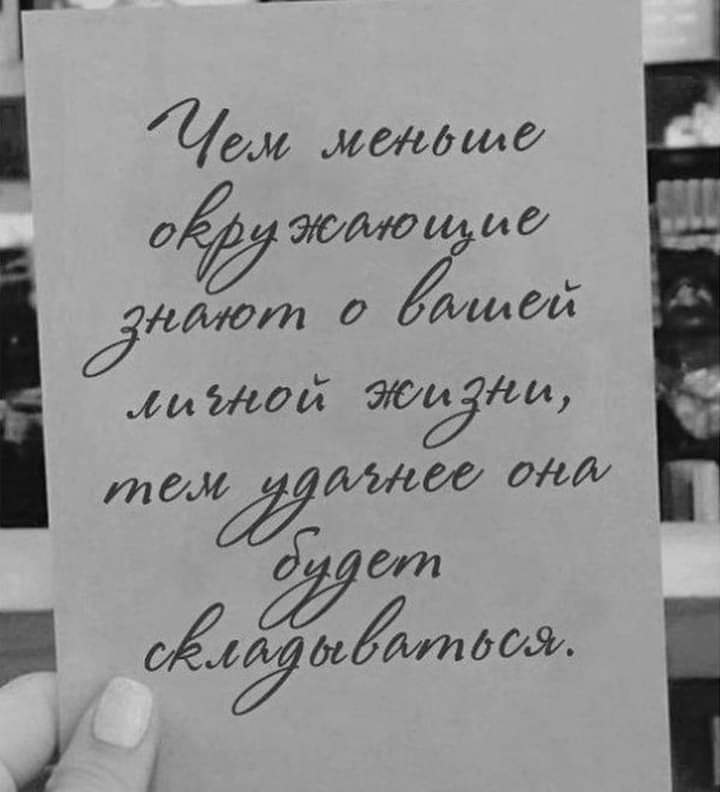 Чем меньше
окружающие
знают о вашей
личной жизни,
тем удачнее она
будет
складываться.